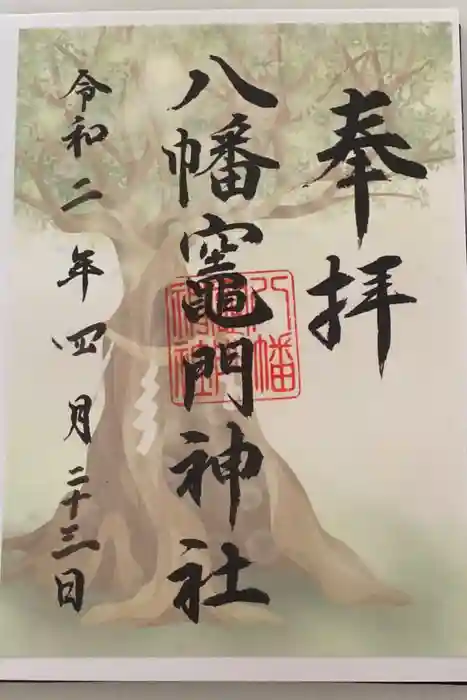 奉拝
八幡竈門神社
八幡竈門神社
令和二年四月二十三日